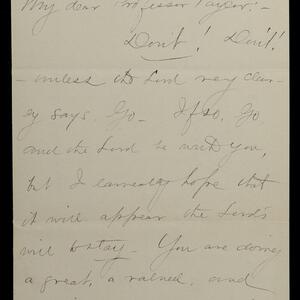 My dear Professor Taylor:-
Don't! Don't!
- unless the Lord very clear-
ly says, Go - If so, Go
and the Lord be with you,
but I earnestly hope that
it will appear the Lord's
will to stay - You are doing
a great, a valued, and